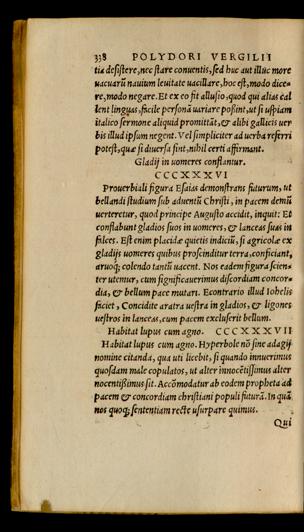 338 POLYDORI VERGILII
tia desistere, nec stare conuentis, sed huc aut illuc more
uacuarũ nauium leuitate uacillare, hoc est, modo dice=
re, modo negare. Et ex eo fit allusio, quod qui alias cal
lent linguas, facile personã uariare possint, ut si uspiam
italico sermone aliquid promittãt, & alibi gallicis uer
bis illud ipsum negent. Vel simpliciter ad uerba referri
potest, quæ si diuersa sint, nihil certi affirmant.
Gladij in uomeres conflantur.
CCCXXXVI
Prouerbiali figura Esaias demonstrans futurum, ut
bellandi studium sub aduentũ Christi, in pacem demũ
uerteretur, quod principe Augusto accidit, inquit: Et
conflabunt gladios suos in uomeres, & lanceas suas in
falces. Est enim placidæ quietis indiciũ, si agricolæ ex
gladijs uomeres quibus proscinditur terra, conficiant,
aruoq; colendo tantũ uacent. Nos eadem figura scien=
ter utemur, cum significauerimus discordiam concor=
dia, & bellum pace mutari. Econtrario illud Iohelis
faciet, Concidite aratra uestra in gladios, & ligones
uestros in lanceas, cum pacem excluserit bellum.
Habitat lupus cum agno. CCCXXXVII
Habitat lupus cum agno. Hyperbole nõ sine adagij
nomine citanda, qua uti licebit, si quando innuerimus
quosdam male copulatos, ut alter innocẽtissimus alter
nocentissimus sit. Accõmodatur ab eodem propheta ad
pacem & concordiam christiani populi futurã. In quã
nos quoq; sententiam recte usurpare quimus.
Qui